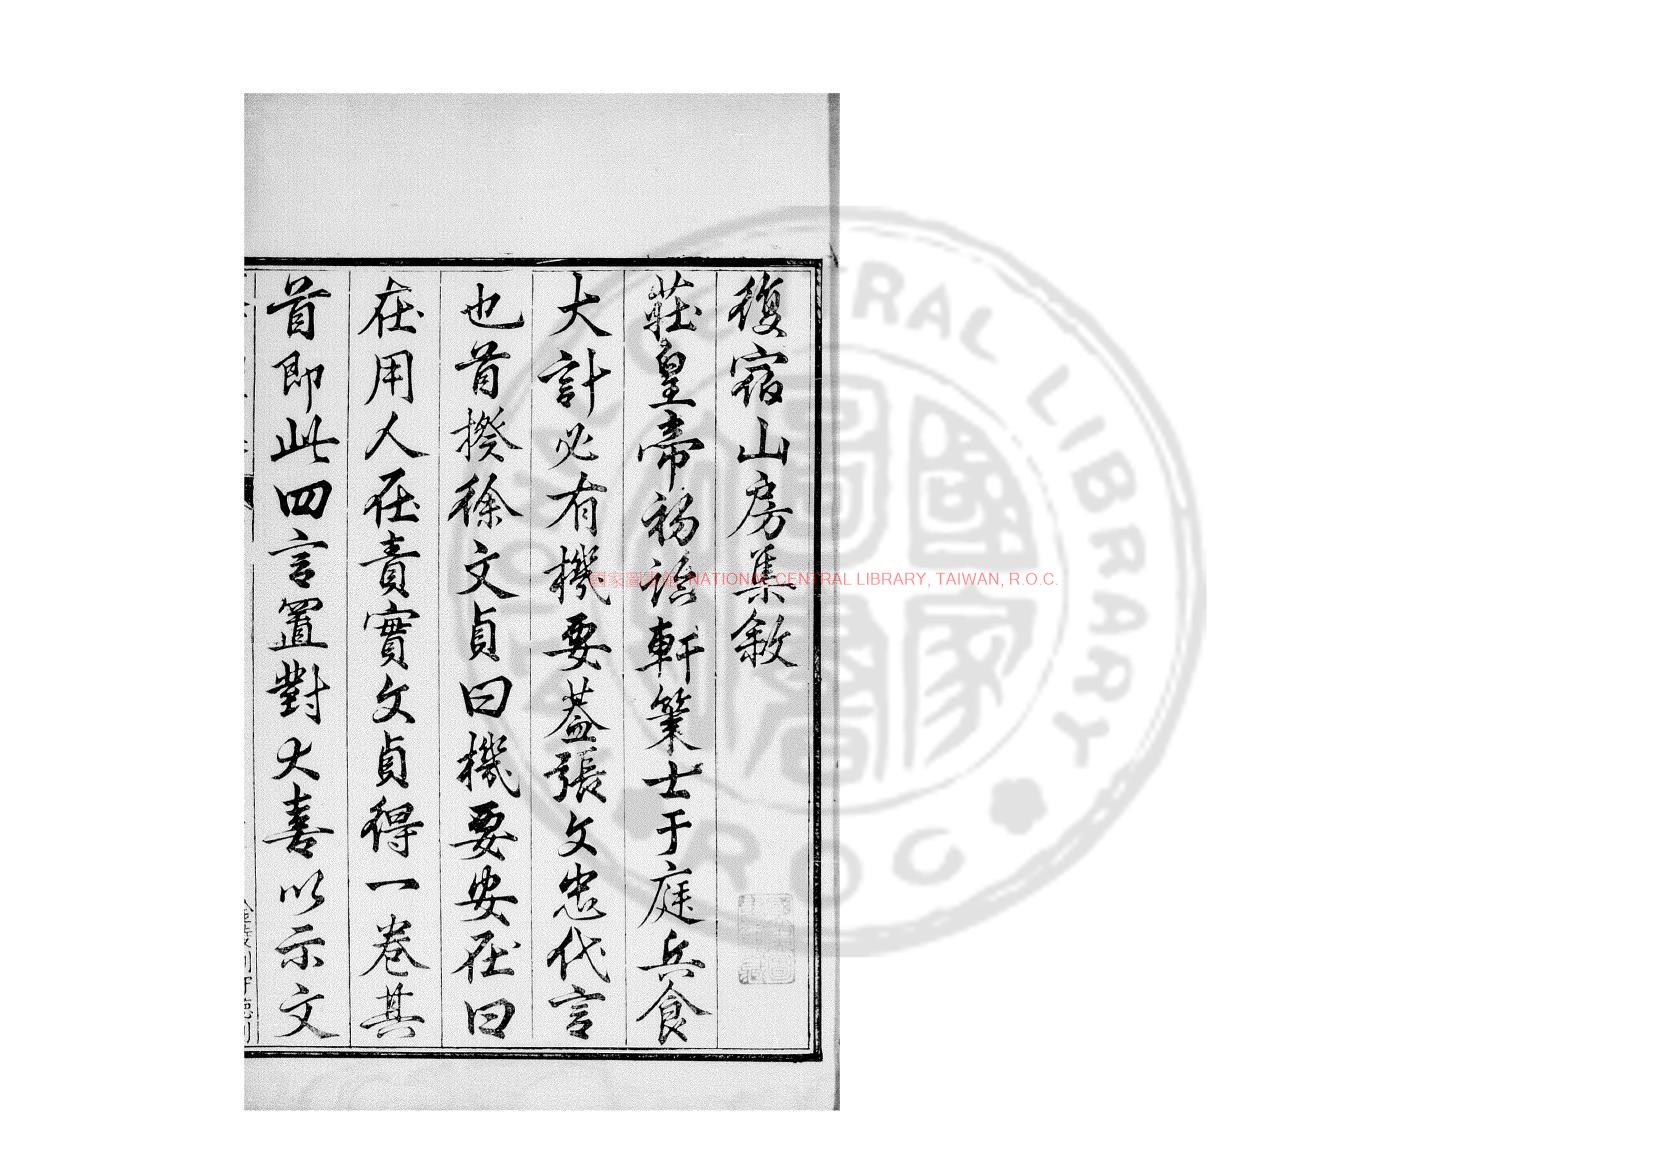 復宿山房集敘
莊皇帝初詔軒策士于庭兵食
大計必有機要葢張文忠代言
也首揆徐文貞曰機要安在曰
在用人在責實文貞得一卷其
首即此四言置對大喜以示文
國家圖書館 NATIONAL CENTRAL LIBRARY, TAIWAN, R.O.C.
CENTRAL LIBRARY
ROC
國家圖書